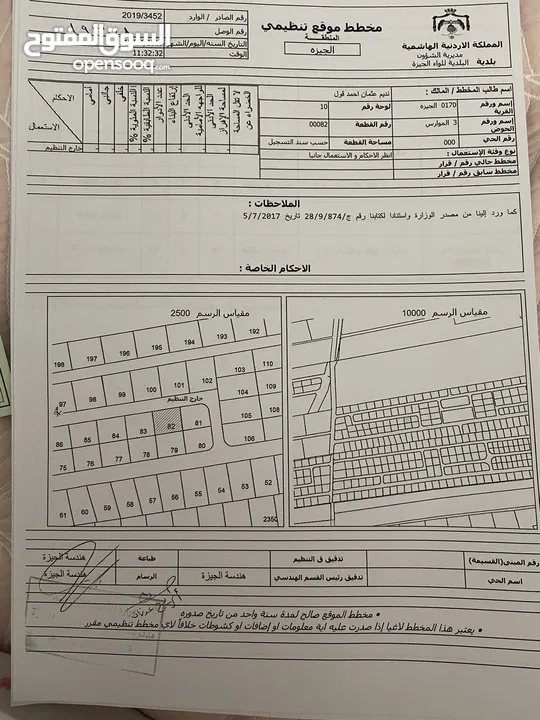 السوق المفتوح
المملكة الاردنية الهاشمية
مديرية الشؤون
بلدية البلدية للواء الجيزة
مخطط موقع تنظيمي
المنطقة
الجيزة
رقم الصادر / الوارد 2019/3452
رقم الوصل
التاريخ السنه/اليوم/الشهر
الوقت 11:32:32
اسم طالب المخطط / المالك : نديم عثمان احمد قول
إسم ورقم القرية 0170 الجيزه لوحة رقم 10
إسم ورقم الحوض 3 الموارس رقم القطعة 00082
رقم الحي 000 مساحة القطعة حسب سند التسجيل
نوع وفئة الإستعمال : انظر الاحكام و الاستعمال جانبا
مخطط حالي رقم / قرار
مخطط سابق رقم / قرار
الخضراء عن
لا تقل المساحة
لمساحة الإفراز
الحد الأدنى
للواجهة الأمامية
الحد الأدنى
إرتفاع البناء
عدد الأدوار
النسبة الطابقية %
النسبة المئوية %
خلفي
جانبي
أمامي
الاحكام
الاستعمال
خارج التنظيم
الملاحظات :
كما ورد إلينا من مصدر الوزارة واستنادا لكتابنا رقم ج/28/9/874 تاريخ 5/7/2017
الاحكام الخاصة :
مقياس الرسم 10000
مقياس الرسم 2500
198 197 196 195 194 193 192
97 98 99 100 101 102 103 110
104 109
خارج التنظيم
105 108
106
86 85 84 83 82 81
75 76 77 78 79 80
61 60 59 58 57 56 55 54 53 52
2350
رقم المبنى(القسيمة) تدقيق ق التنظيم طباعة هندسة الجيزة
اسم الحي تدقيق رئيس القسم الهندسي هندسة الجيزة الرسام هندسة الجيزة
• مخطط الموقع صالح لمدة سنة واحد من تاريخ صدوره
• يعتبر هذا المخطط لاغيا إذا صدرت عليه اية معلومات او إضافات او كشوطات خلافاً لاي مخطط تنظيمي مقرر